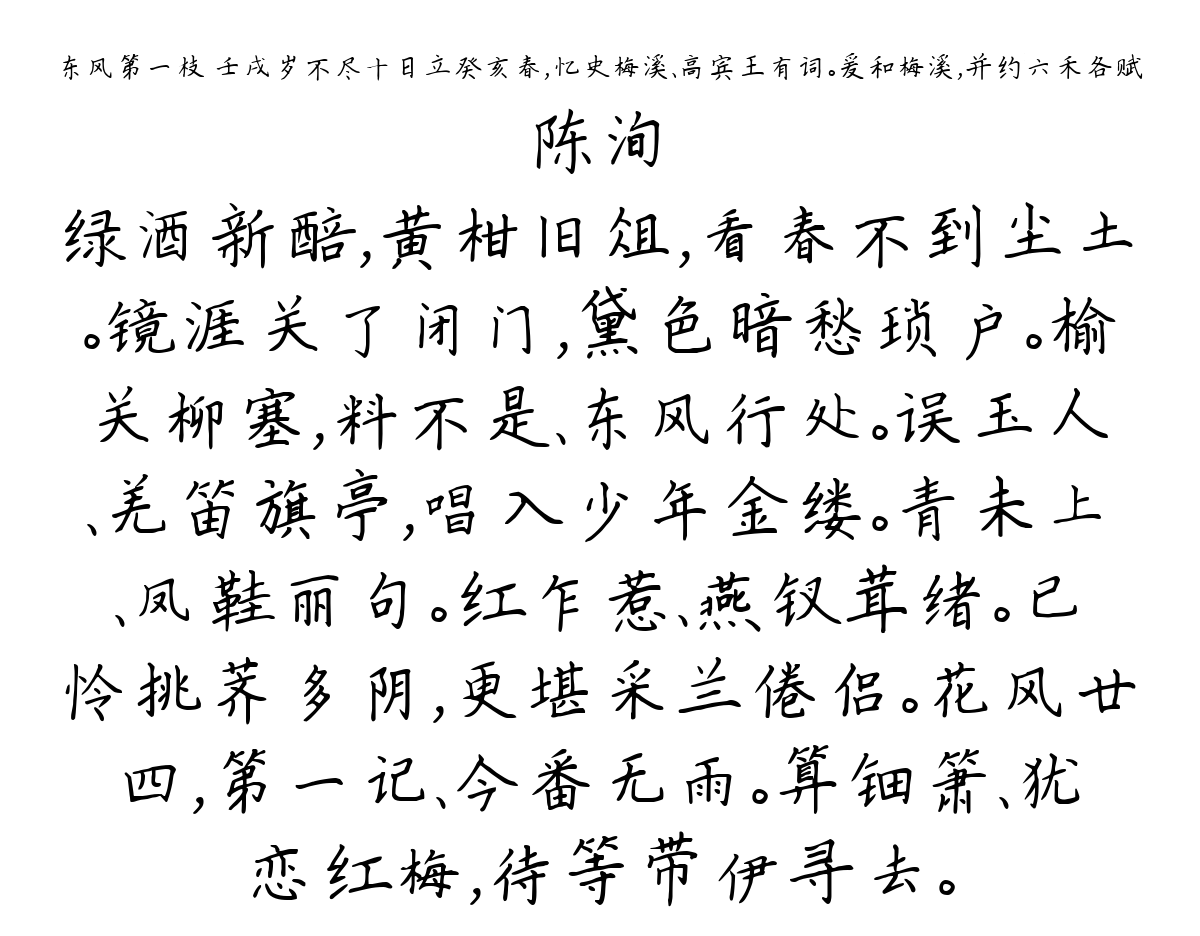 东风第一枝 壬戌岁不尽十日立癸亥春,忆史梅溪、高宾王有词。爰和梅溪,并约六禾各赋
陈洵
绿酒新醅,黄柑旧俎,看春不到尘土
。镜涯关了闭门,黛色暗愁琐户。榆
关柳塞,料不是、东风行处。误玉人
、羌笛旗亭,唱入少年金缕。青未上
、凤鞋丽句。红乍惹、燕钗茸绪。已
怜挑荠多阴,更堪采兰倦侣。花风廿
四,第一记、今番无雨。算钿箫、犹
恋红梅,待等带伊寻去。